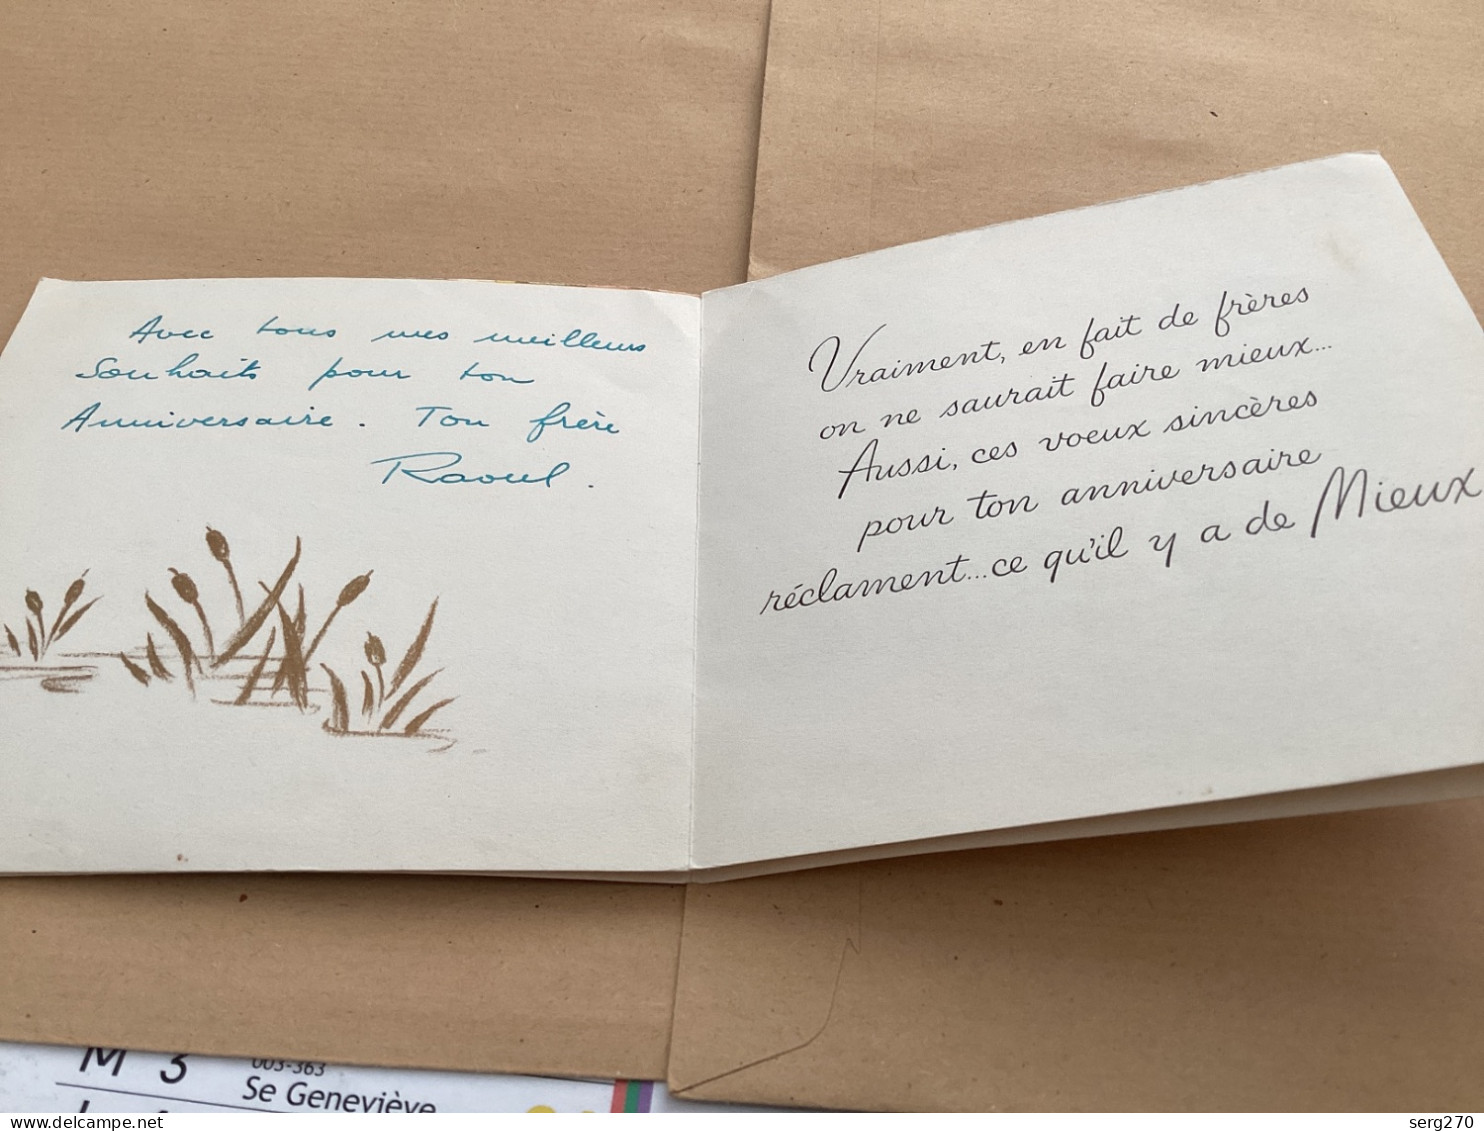 Avec tous mes meilleurs
Souhaits pour ton
Anniversaire. Ton frère
Raoul.
Vraiment, en fait de frères
on ne saurait faire mieux...
Aussi, ces voeux sincères
pour ton anniversaire
réclament...ce qu'il y a de Mieux
M 3
003-363
Se Geneviève
delcampe.net
serg270